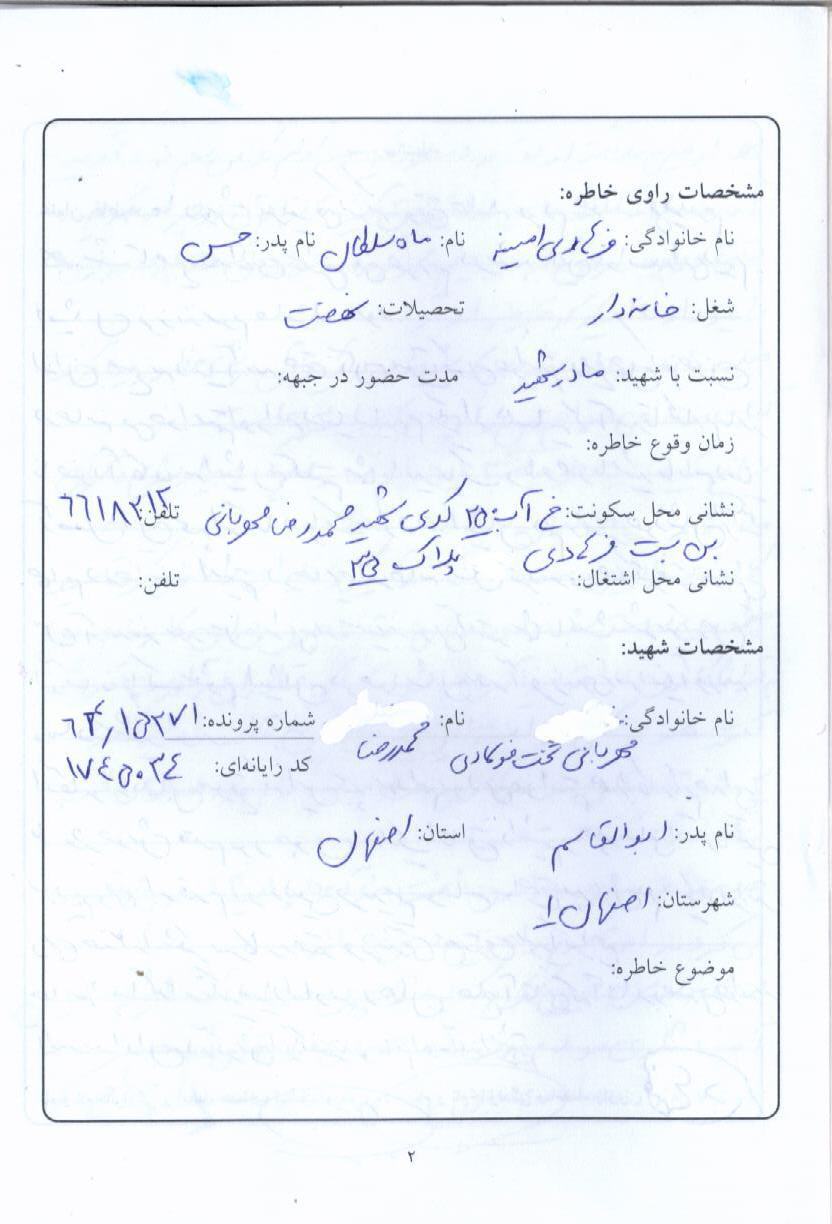 مشخصات راوی خاطره:
نام خانوادگی: فرهادی امسیه نام: ماه سلطان نام پدر: حسن
شغل: خانه‌دار تحصیلات: نهضت
نسبت با شهید: مادر شهید مدت حضور در جبهه:
زمان وقوع خاطره:
نشانی محل سکونت: خ آب ۲۵۰ کوی شهید محمدرضا مهربانی تلفن:
بن بست فرهادی پلاک
نشانی محل اشتغال: تلفن:
مشخصات شهید:
نام خانوادگی: نام: شماره پرونده:
مهربانی تخت فولادی محمدرضا کد رایانه‌ای: ۱۷۴۵۰۳۴
نام پدر: ابوالقاسم استان: اصفهان
شهرستان: اصفهان ۱
موضوع خاطره:
۲